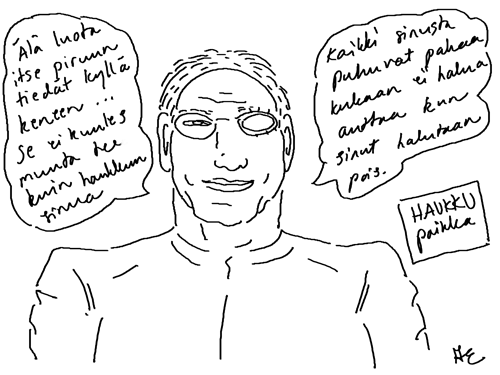 Älä luota
itse piruun
tiedät kyllä
keneen ...
Se ei kuules
muuta tee
kuin haukkuu
sinua
Kaikki sinusta
puhuvat pahaa
kukaan ei halua
auttaa kun
sinut halutaan
pois.
HAUKKU
paikka